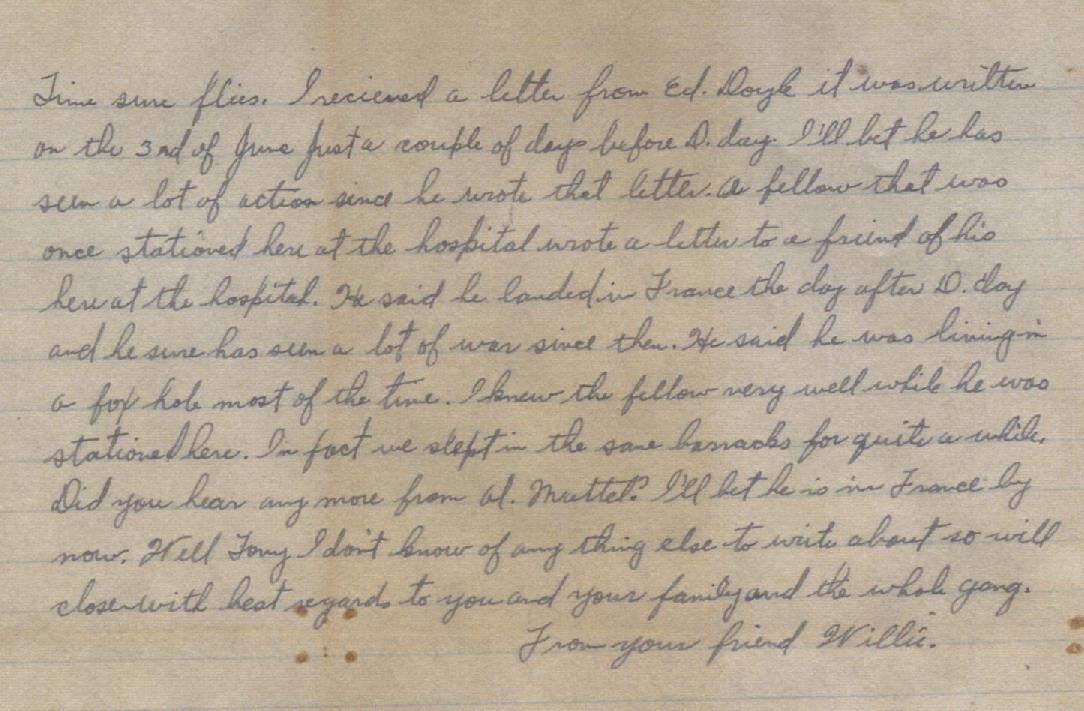 Time sure flies. I recieved a letter from Ed. Doyle it was written
on the 3rd of June just a couple of days before D. day. I'll bet he has
seen a lot of action since he wrote that letter. A fellow that was
once stationed here at the hospital wrote a letter to a friend of his
here at the hospital. He said he landed in France the day after D. day
and he sure has seen a lot of war since then. He said he was living in
a fox hole most of the time. I knew the fellow very well while he was
stationed here. In fact we slept in the same barracks for quite a while.
Did you hear any more from Al. Muttel? I'll bet he is in France by
now. Well Tony I don't know of any thing else to write about so will
close with best regards to you and your family and the whole gang.
From your friend Willie.